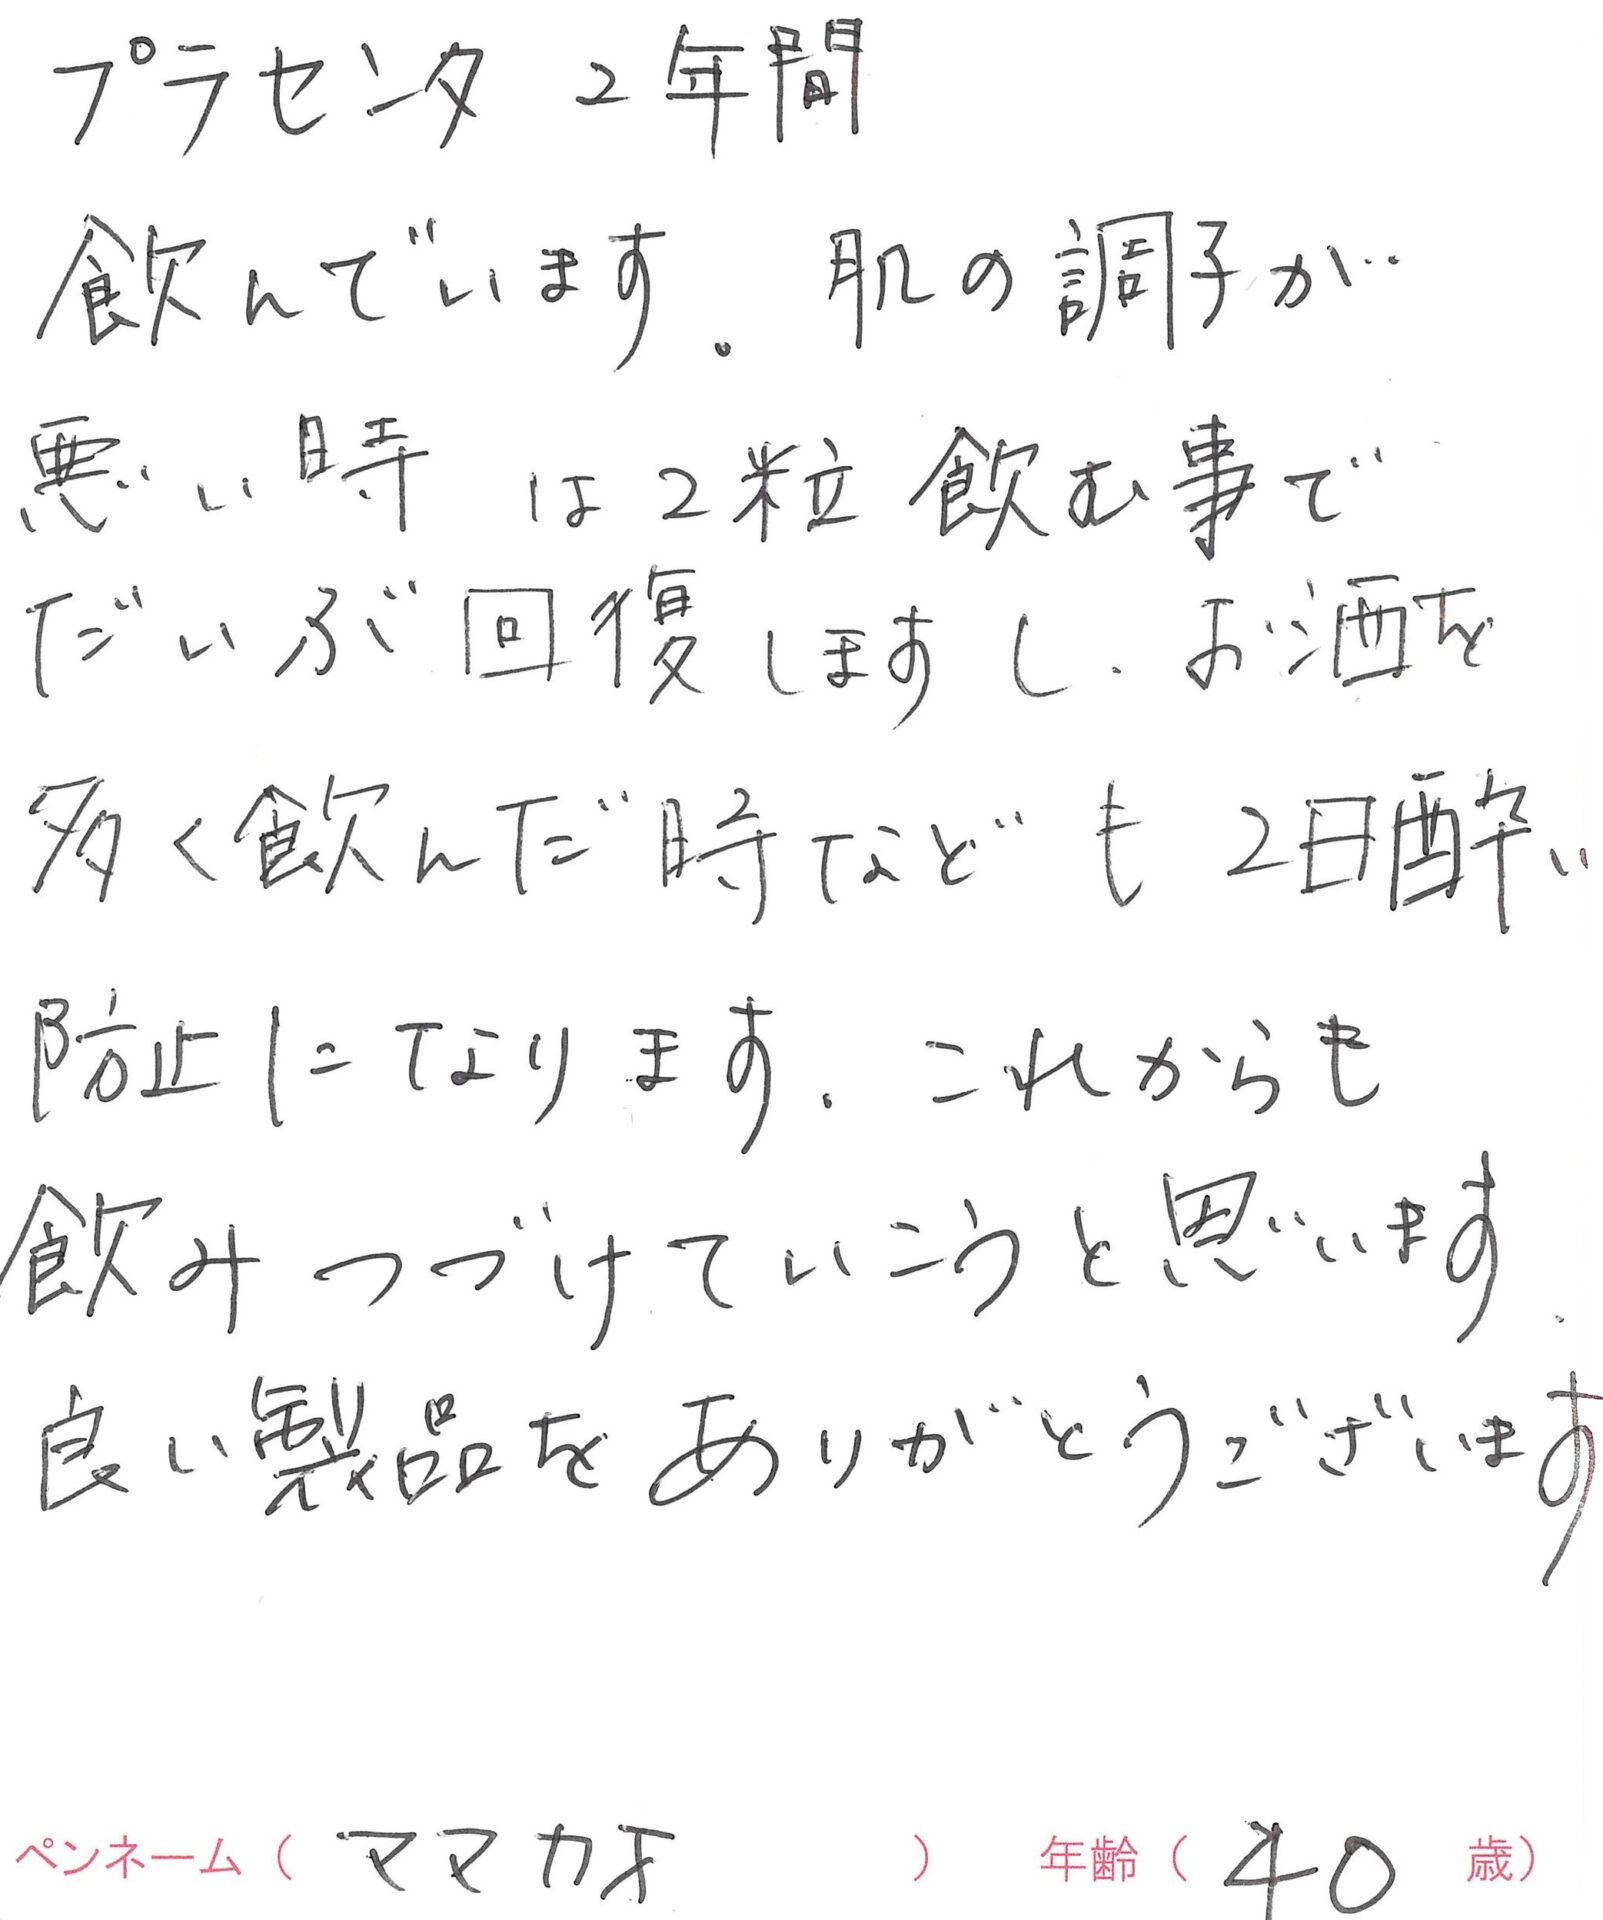 プラセンタ 2年間
飲んでいます。肌の調子が
悪い時は2粒飲む事で
だいぶ回復しますし、お酒を
多く飲んだ時なども2日酔い
防止になります。これからも
飲みつづけていこうと思います。
良い製品をありがとうございます
ペンネーム（ ママカオ ） 年齢（ 40 歳）